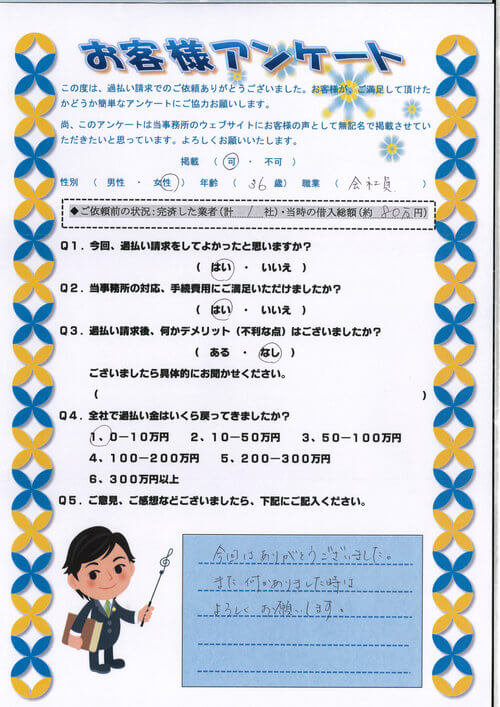 お客様アンケート
この度は、過払い請求でのご依頼ありがとうございました。お客様が、ご満足して頂けた
かどうか簡単なアンケートにご協力お願いします。
尚、このアンケートは当事務所のウェブサイトにお客様の声として無記名で掲載させてい
ただきたいと思っています。よろしくお願いいたします。
掲載 ( 可 ・ 不可 )
性別 ( 男性 ・ 女性 ) 年齢 ( 36 歳) 職業 ( 会社員 )
◆ご依頼前の状況:完済した業者(計 1 社)・当時の借入総額(約 80万円)
Q1.今回、過払い請求をしてよかったと思いますか?
( はい ・ いいえ )
Q2.当事務所の対応、手続費用にご満足いただけましたか?
( はい ・ いいえ )
Q3.過払い請求後、何かデメリット(不利な点)はございましたか?
( ある ・ なし )
ございましたら具体的にお聞かせください。
( )
Q4.全社で過払い金はいくら戻ってきましたか?
1、0-10万円 2、10-50万円 3、50-100万円
4、100-200万円 5、200-300万円
6、300万円以上
Q5.ご意見、ご感想などございましたら、下記にご記入ください。
今回はありがとうございました。
また何かありました時は
よろしくお願いします。